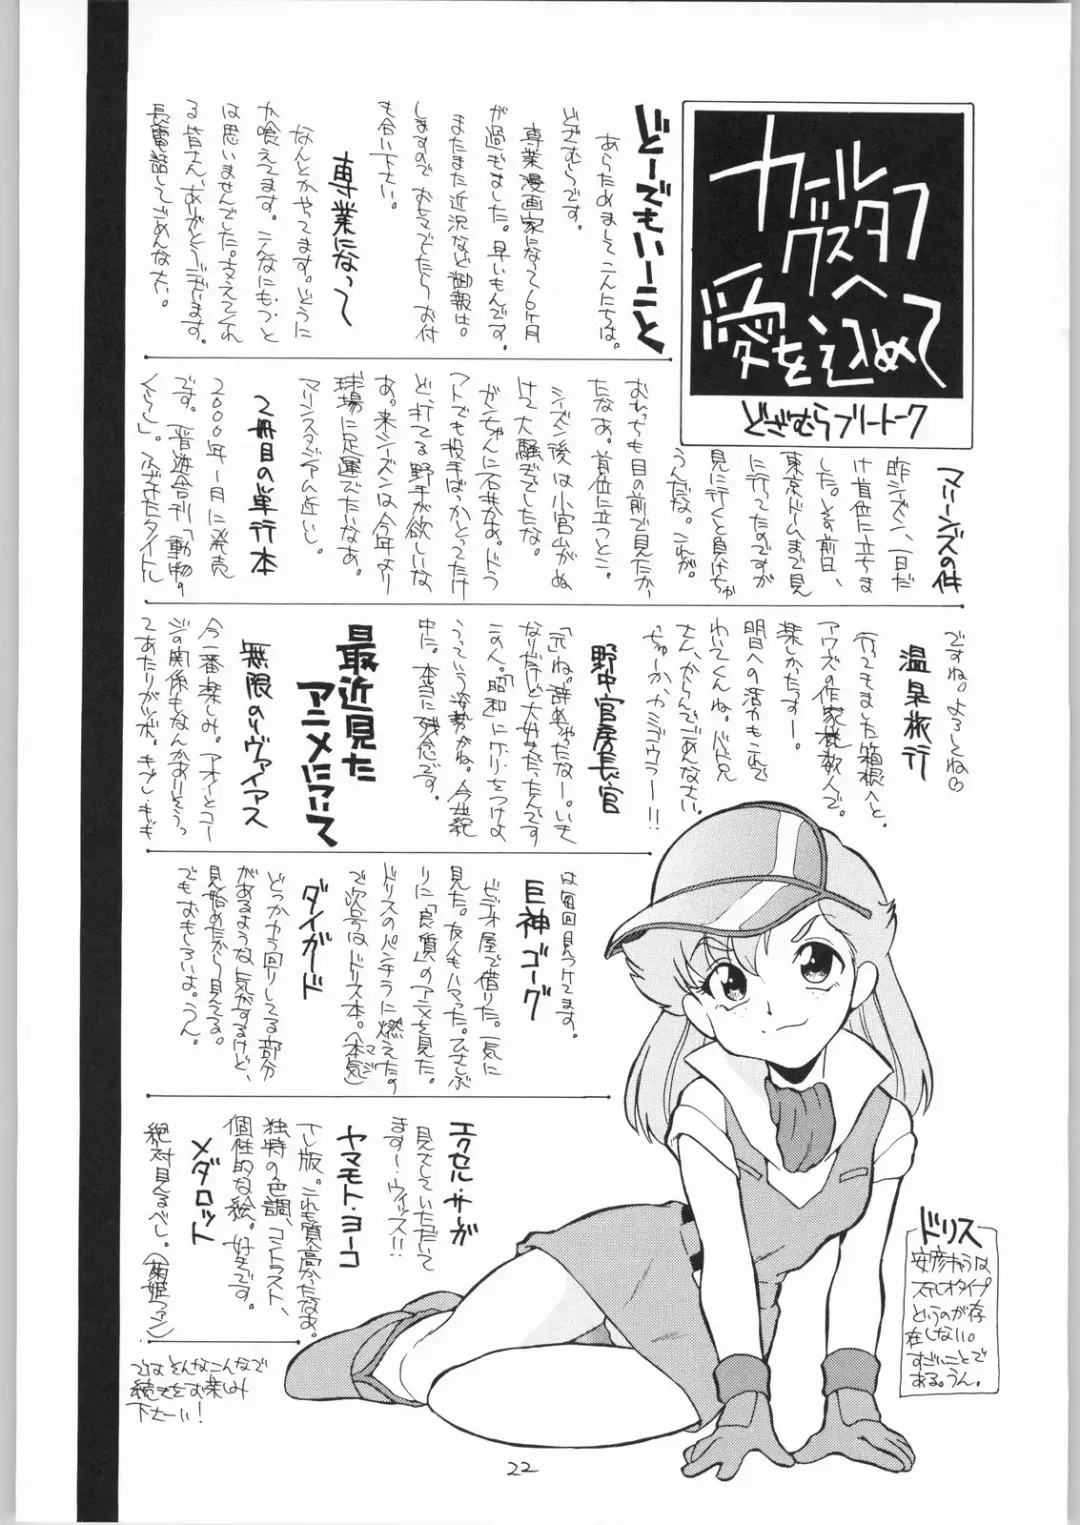 カール
グスタフ
へ
愛を込めて
どざむらフリートーク
どーでもいーこと
あらためましてこんにちは。
どざむらです。
専業漫画家になって6ヶ月
が過ぎました。早いもんです。
またまた近況など画報は。
しますので おヒマでたらお付
き合い下さい。
専業になって
なんとかやってます。どうに
か喰えてます。こんなにもつと
は思いませんでした。支えてくれ
る皆さん、ありがとうございます。
長電話してごめんなさい。
マリーンズの件
昨シーズン、一日だ
け首位に立ちま
した。その前日、
東京ドームまで見
に行ってたのですが
見に行くと負けちゃ
うんだな。これが。
おれっちも目の前で見たか
たなあ。首位に立つとこ。
シーズン後は小宮山がぬ
けて大騒ぎでしたな。
ガンちゃんに石井かあ。ドラ
フトでも投手ばっかとってたけ
ど、打てる野手が欲しいな
あ。来シーズンは今年より
球場に足運びたいなあ。
マリンスタジアム近いし。
2冊目の単行本
2000年1月に発売
です。晋遊舎刊「動物の
くに」。ふざけたタイトル
ですね。よろしとね♡
温泉旅行
行ってきました箱根へと。
アワーズの作家陣数人で。
楽しかたっすー。
明日への活力もこれで
わいてくんね。バド兄
さん、からんでごめんなさい。
ちゅーかカミゴウラー!!
野中官房長官
「元」ね。辞めちゃたなー。いき
なりだけど大好きだったんです
この人。「昭和」にケリをつけよ
うっていう姿勢がね。今世紀
中に。本当に残念です。
最近見た
アニメについて
無限のリヴァイアス
今一番楽しみ。アオイとコー
ジの関係もなんかありそうっ
てあたりがツボ。キブレ・キブ
は毎回見つけてます。
巨神ゴーグ
ビデオ屋で借りた。一気に
見た。友人もハマった。ひさしぶ
りに「良質」のアニメを見た。
ドリスのパンチラに燃えたの
で次号はドリス本。(本気)
マジ
ダイガード
どっかから回りしてる部分
があるような気がするけど、
見始めたから見てる。
でもおもしろいよ。うん。
エクセル・サーガ
見さしていただいて
ます!・ウィッス!!
ヤマモト・ヨーコ
TV版。これも質高かったなぁ。
独特の色調、コントラスト、
個性的な絵。好きです。
メダロット
絶対見るべし。(菊姫ファン)
ではそんなこんなで
続きをお楽しみ
下さーい!
ドリス
安彦キャラは
ステレオタイプ
というのが存
在しない。
すごいことで
ある。うん。
22